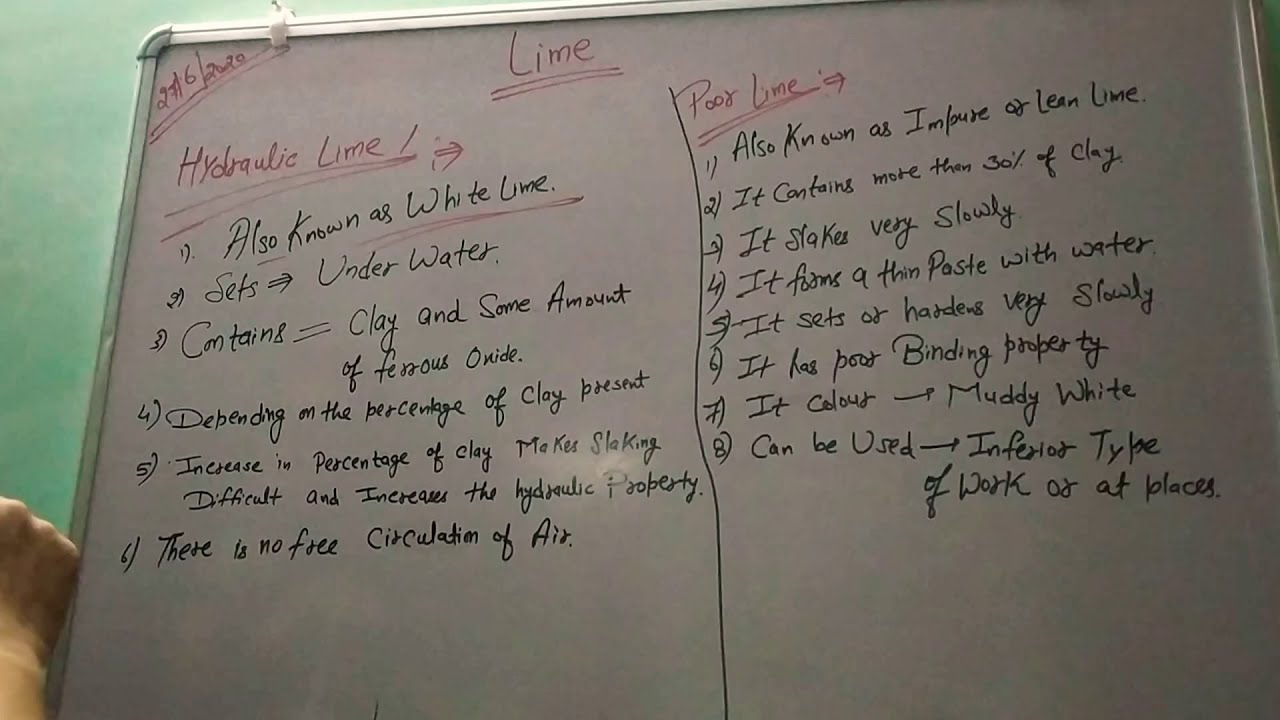 27/6/2020
Lime
Hydraulic Lime / :⇒
1). Also Known as White Lime.
2) Sets ⇒ Under Water.
3) Contains = Clay and Some Amount
of ferrous Oxide.
4) Depending on the percentage of Clay present
5) Increase in Percentage of clay Makes Slaking
Difficult and Increases the hydraulic Property.
6) There is no free Circulation of Air.
Poor Lime :⇒
1) Also Known as Impure or Lean Lime.
2) It Contains more than 30% of Clay.
3) It Slakes very Slowly.
4) It forms a thin Paste with water.
5) It sets or hardens very Slowly
6) It has poor Binding property
7) It Colour → Muddy White
8) Can be Used → Inferior Type
of Work or at places.